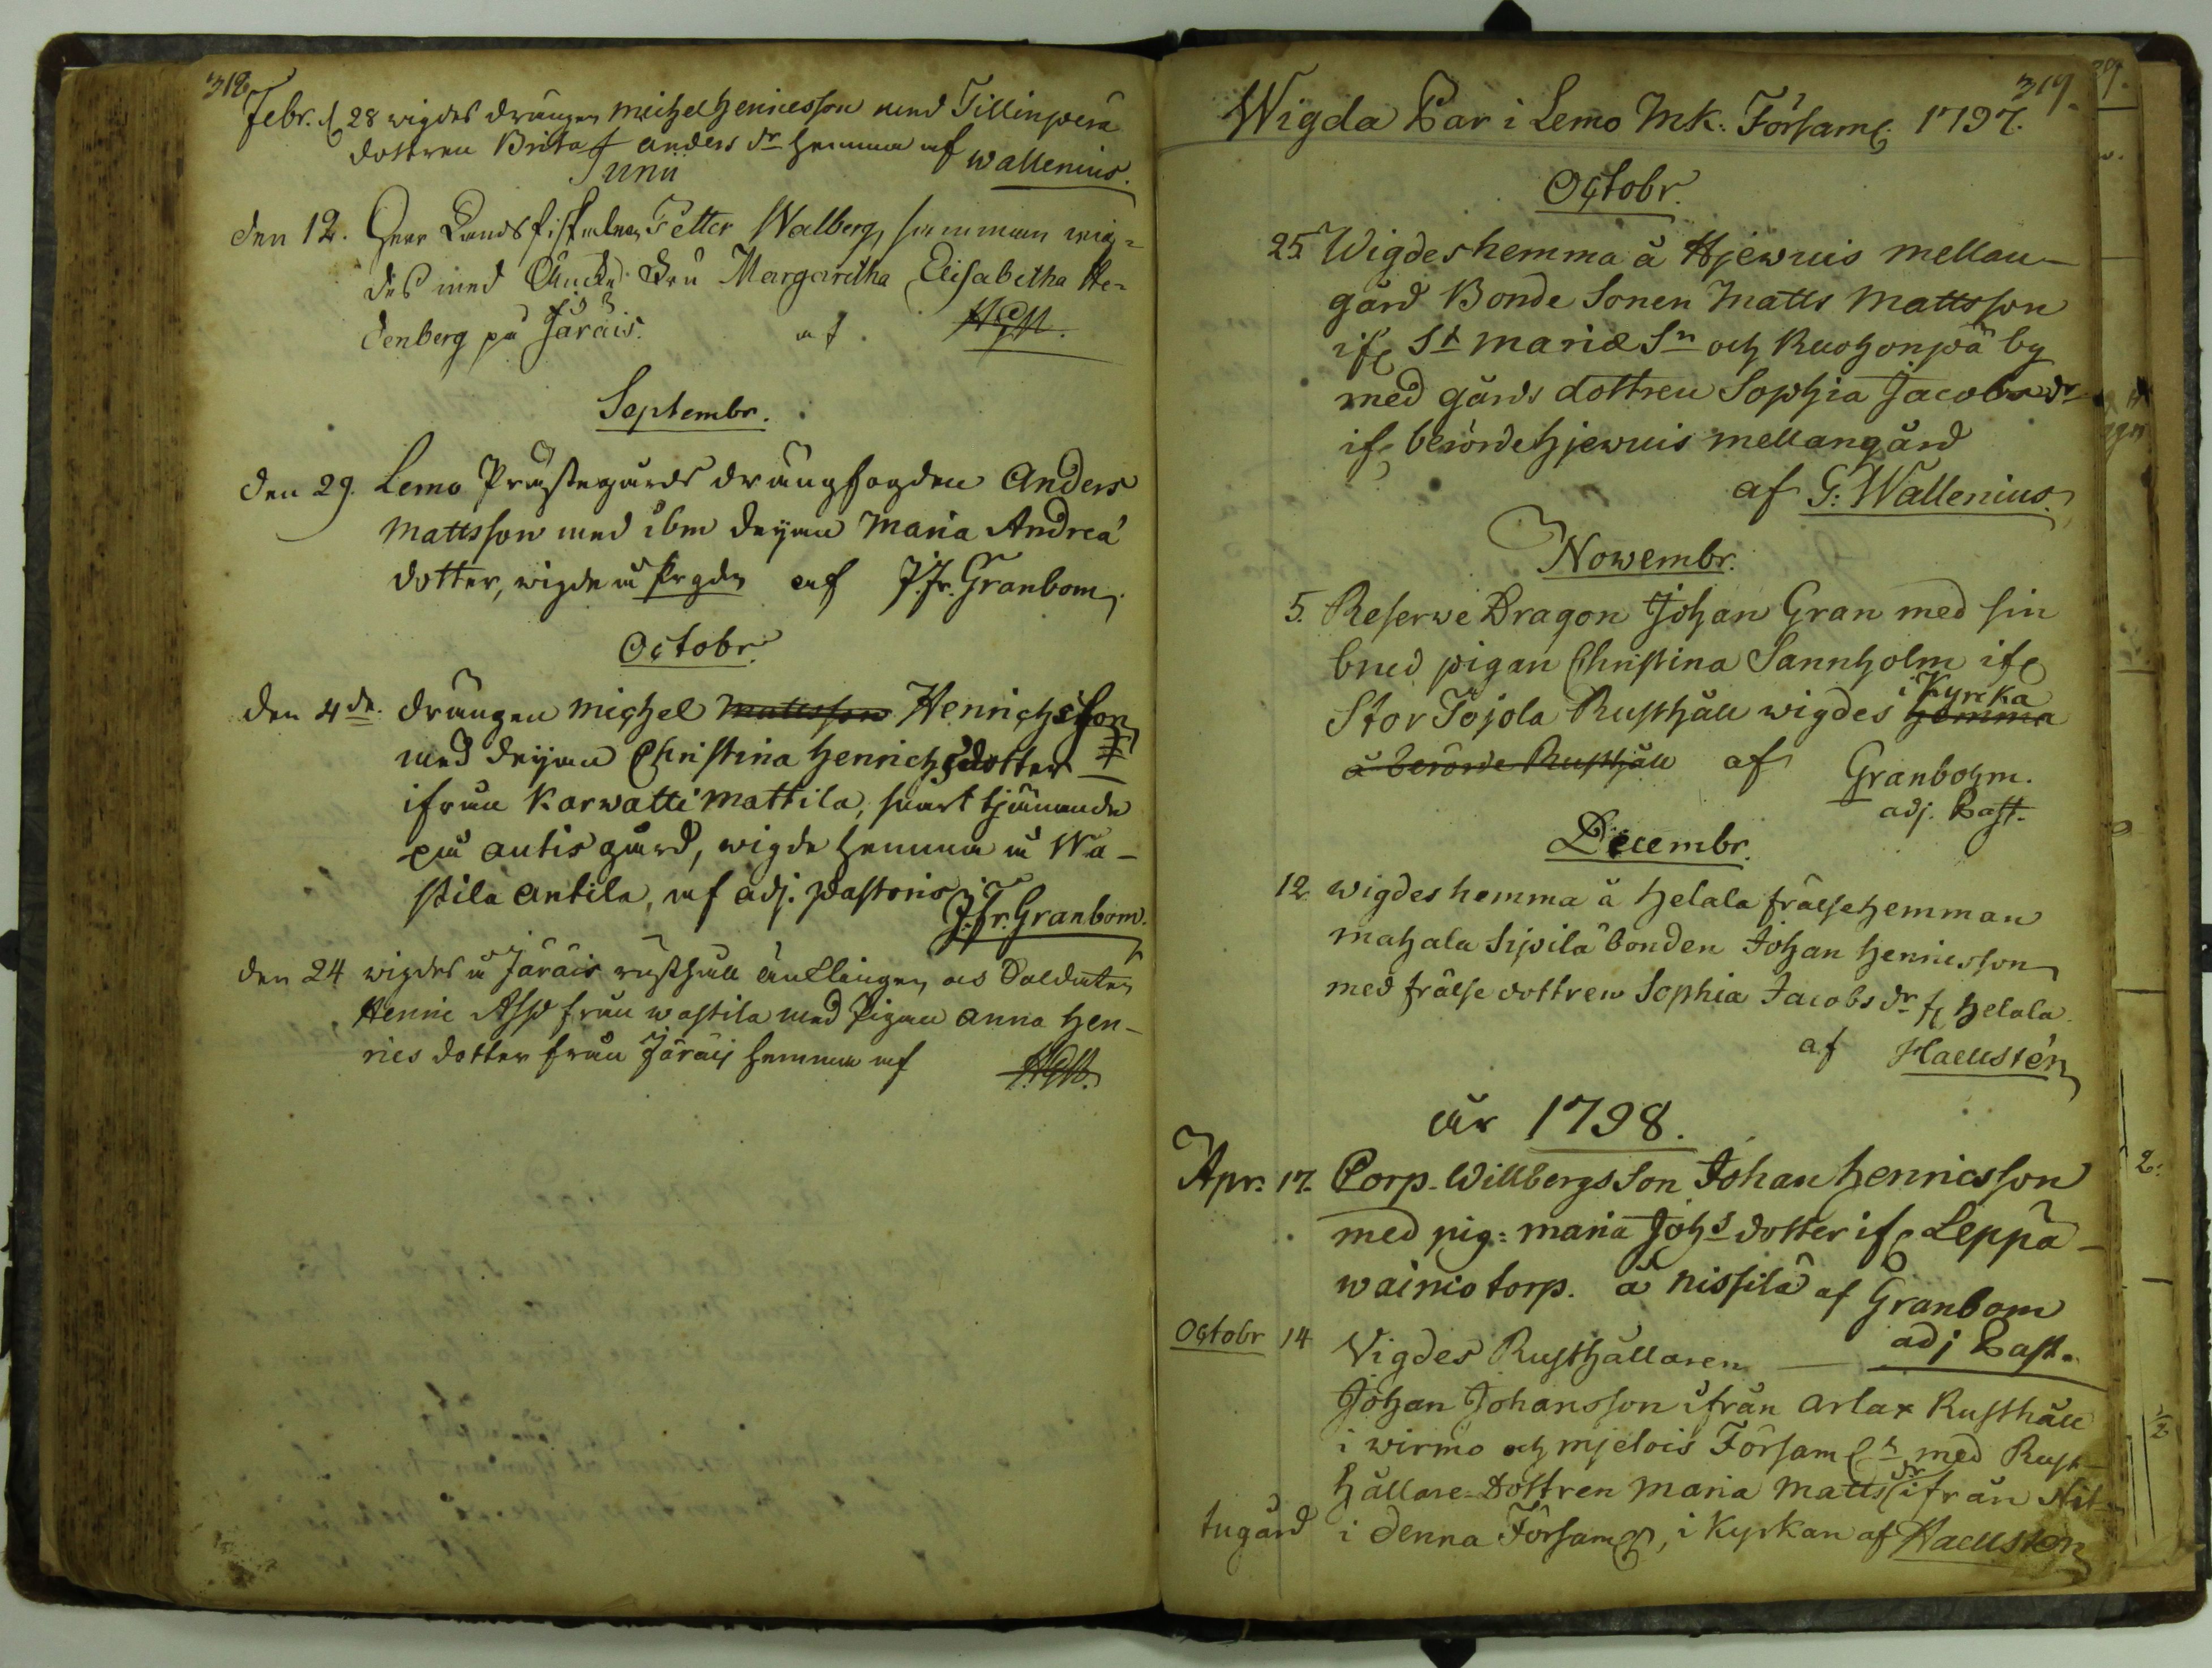 318
Febr. d 28 wigdes drängen Michel Henricsson med Tillinperä
dottren Brita Anders dr hemma af Wallenius.
Junii
den 12. Herr Landsfiskalen Petter Walberg, wig=
des med Enckefru Margaretha Elisabetha He=
denberg på Järäis. af
Septembr.
den 29. Lemo Prästegårds drängfogden Anders
Mattsson med ibm deijan Maria Andreæ
dotter, wigde å Prgdn af J. Fr. Granbom
Octobr.
den 4de. drängen Michel Mattsson Henrichsson
med deijan Christina Henrichsdotter
ifrån Karwatti Mattila, tjänande
på Antis gård, wigde hemma å Wa-
stila Antila, af adj. pastoris
J. Fr. Granbom.
den 24 wigdes å Järäis rusthåll änklingen Soldaten
Henric Asp från Wastila med Pigan Anna Hen-
rics dotter från Järäis hemma af
319.
Wigda Par i Lemo Mk: Församl. 1797.
Octobr.
25. Wigdes hemma å Hjewuis mellan-
gård Bonde Sonen Matts Mattsson
ifr St Mariæ Sn och Ruohonpä by
med gårds dottren Sophia Jacobs dr
ifr berörde Hjewuis mellangård
af G: Wallenius.
Nowembr.
5. Reserwe Dragon Johan Gran med sin
brud pigan Christina Sannholm ifr
i Kyrcka
Stor Tojola Rusthåll wigdes hemma
å berörde Rusthåll af Granbohm.
adj. Past.
Decembr.
12 wigdes hemma å Helala frälsehemman
mahala Sipilä bonden Johan Henricsson
med frälse dottren Sophia Jacobs dr fr Helala.
af Haellstén
år 1798.
Apr. 17. Corp. Willbergs Son Johan Henricsson
med pig: Maria Johs dotter ifr Leppä-
wainio torp. å Nissilä af Granbom
adj Past.
Octobr 14 Vigdes Rusthållaren
Johan Johansson ifrån Arlax Rusthåll
i wirmo och mjetois Församl.r med Rust-
hållare-Dottren Maria Matts dr ifrån Nit-
tugård i denna Församl., i Kyrkan af Haellsten